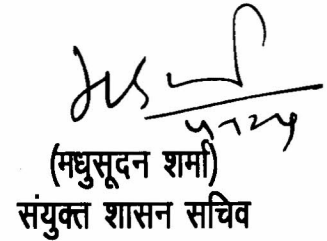 (मधुसूदन शर्मा)
संयुक्त शासन सचिव